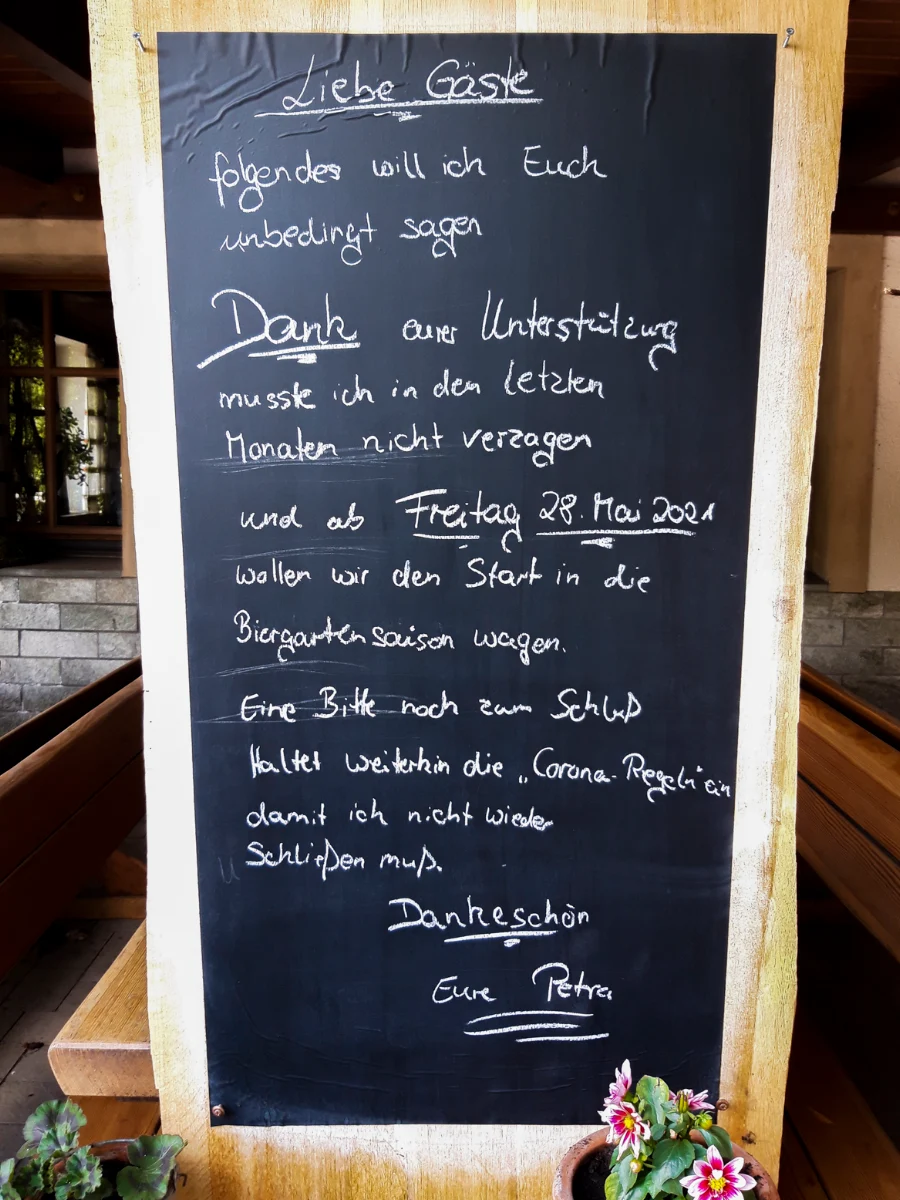 Liebe Gäste
folgendes will ich Euch
unbedingt sagen
Dank eurer Unterstützung
musste ich in den letzten
Monaten nicht verzagen
und ab Freitag 28. Mai 2021
wollen wir den Start in die
Biergartensaison wagen.
Eine Bitte noch zum Schluß
Haltet weiterhin die „Corona-Regeln" ein
damit ich nicht wieder
Schließen muß.
Dankeschön
Eure Petra